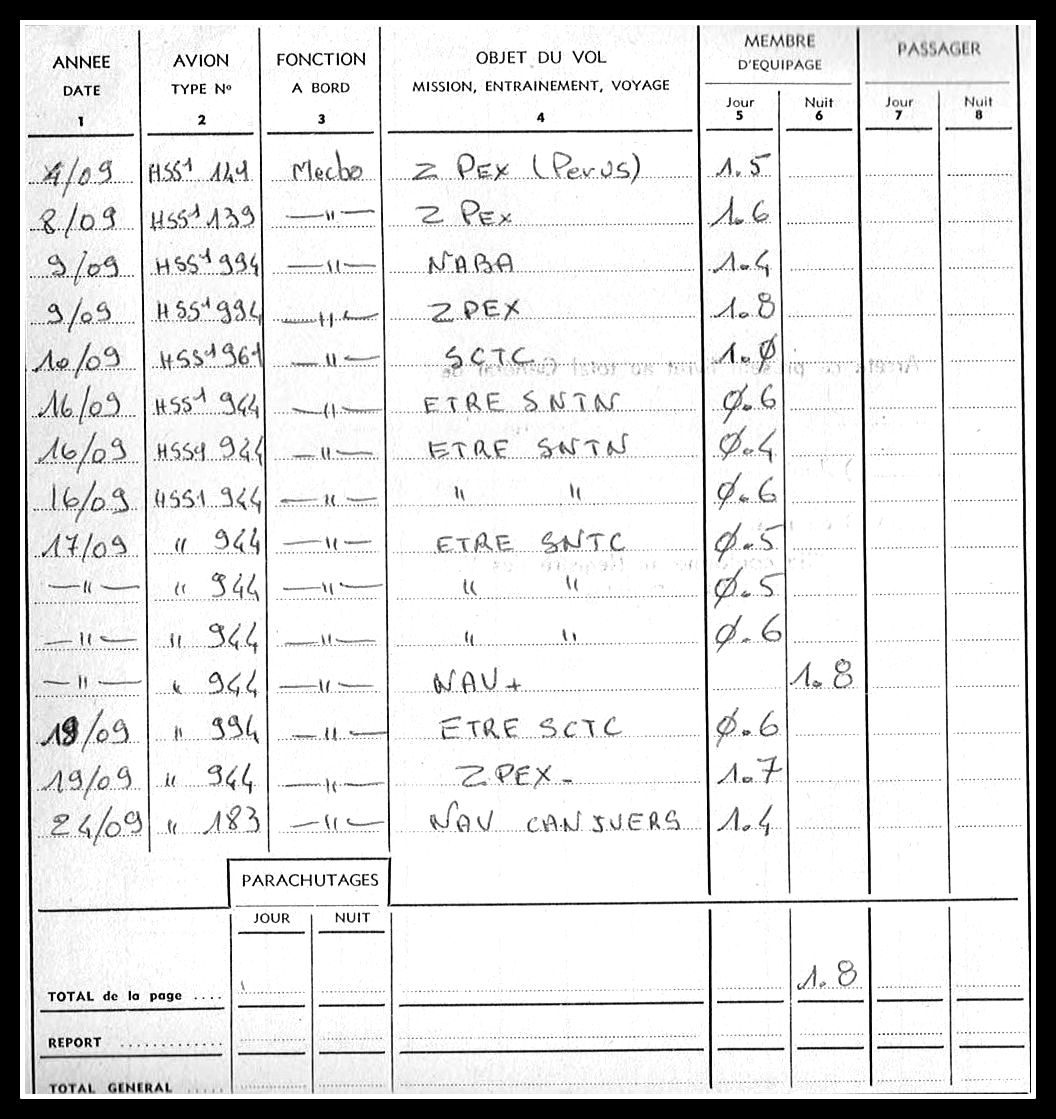 ANNEE AVION FONCTION OBJET DU VOL MEMBRE D'EQUIPAGE PASSAGER
DATE TYPE Nº A BORD MISSION, ENTRAINEMENT, VOYAGE Jour Nuit Jour Nuit
1 2 3 4 5 6 7 8
4/09 HSS1 149 Mecbo Z PEX (Perus) 1.5
8/09 HSS1 139 —"— Z PEX 1.6
9/09 HSS1 994 —"— NABA 1.4
9/09 HSS1 994 —"— Z PEX 1.8
10/09 HSS1 961 —"— SCTC 1.0
16/09 HSS1 944 —"— ETRE SNTN 0.6
16/09 HSS1 944 —"— ETRE SNTN 0.4
16/09 HSS1 944 —"— " " 0.6
17/09 " 944 —"— ETRE SNTC 0.5
—"— " 944 —"— " " 0.5
—"— " 944 —"— " " 0.6
—"— " 944 —"— NAV+ 1.8
19/09 " 994 —"— ETRE SCTC 0.6
19/09 " 944 —"— Z PEX - 1.7
24/09 " 183 —"— NAV CANJUERS 1.4
PARACHUTAGES
JOUR NUIT
TOTAL de la page .... 1.8
REPORT ............
TOTAL GENERAL .....